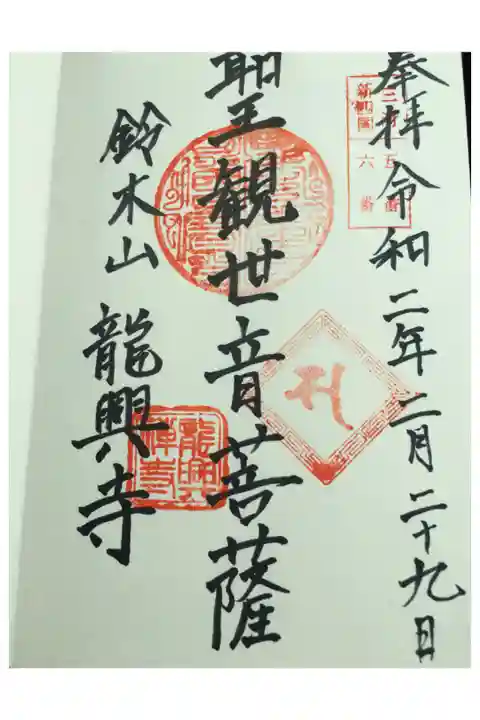 奉拝 令和二年二月二十九日
新四国
六番
聖観世音菩薩
鈴木山 龍興寺